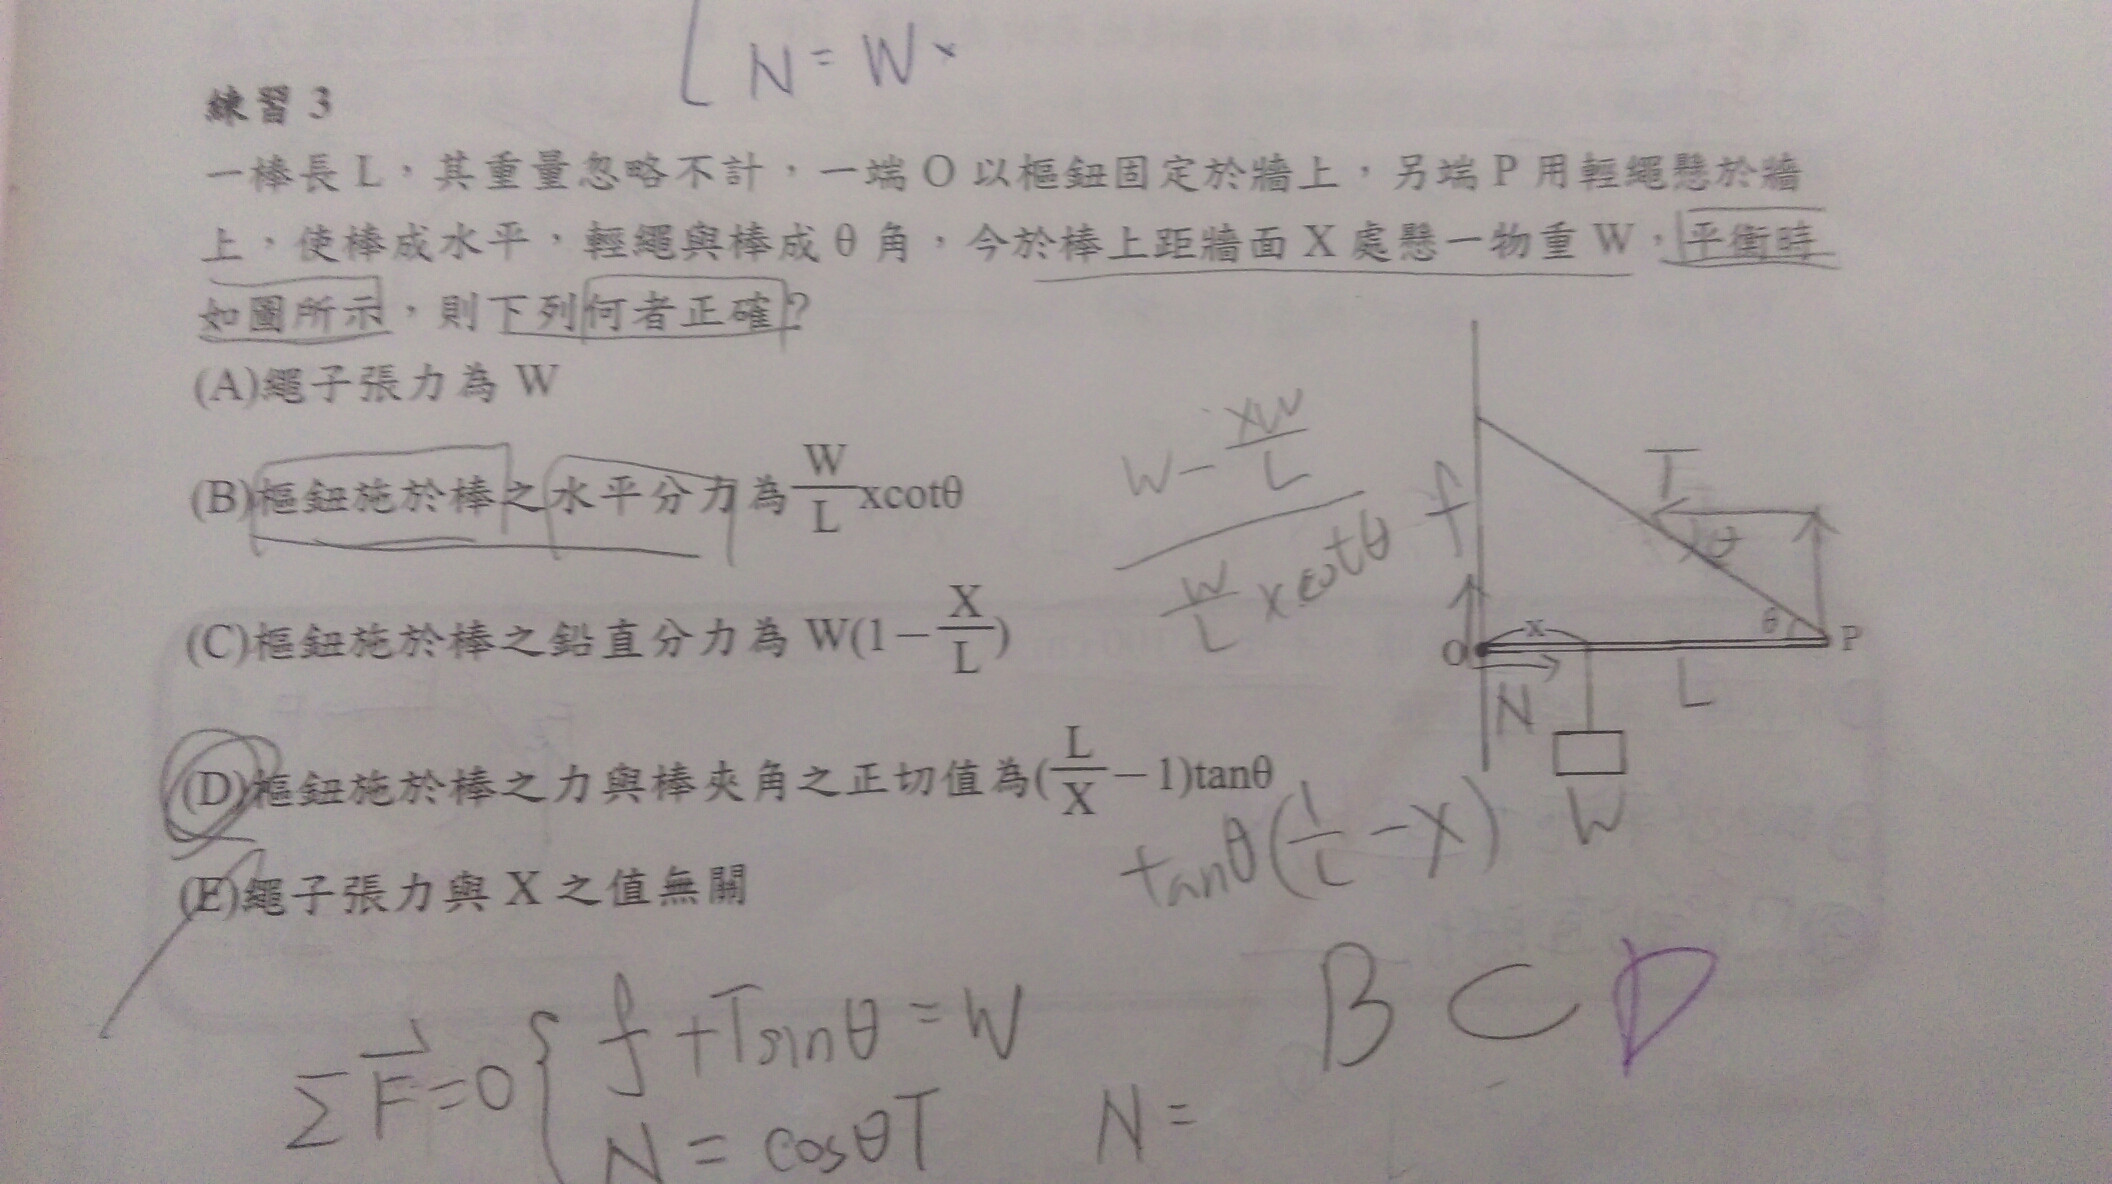 N = W x
練習 3
一棒長 L，其重量忽略不計，一端 O 以樞鈕固定於牆上，另端 P 用輕繩懸於牆
上，使棒成水平，輕繩與棒成 θ 角，今於棒上距牆面 X 處懸一物重 W，平衡時
如圖所示，則下列何者正確？
(A)繩子張力為 W
(B)樞鈕施於棒之水平分力為 W/L xcotθ
(C)樞鈕施於棒之鉛直分力為 W(1－X/L)
(D)樞鈕施於棒之力與棒夾角之正切值為(L/X－1)tanθ
(E)繩子張力與 X 之值無關
W - xW/L
W/L x cotθ
f
T
θ
θ
P
O
x
N
L
W
tanθ(1/L - X)
B C D
ΣF=0 { f + Tsinθ = W
N = cosθT
N =